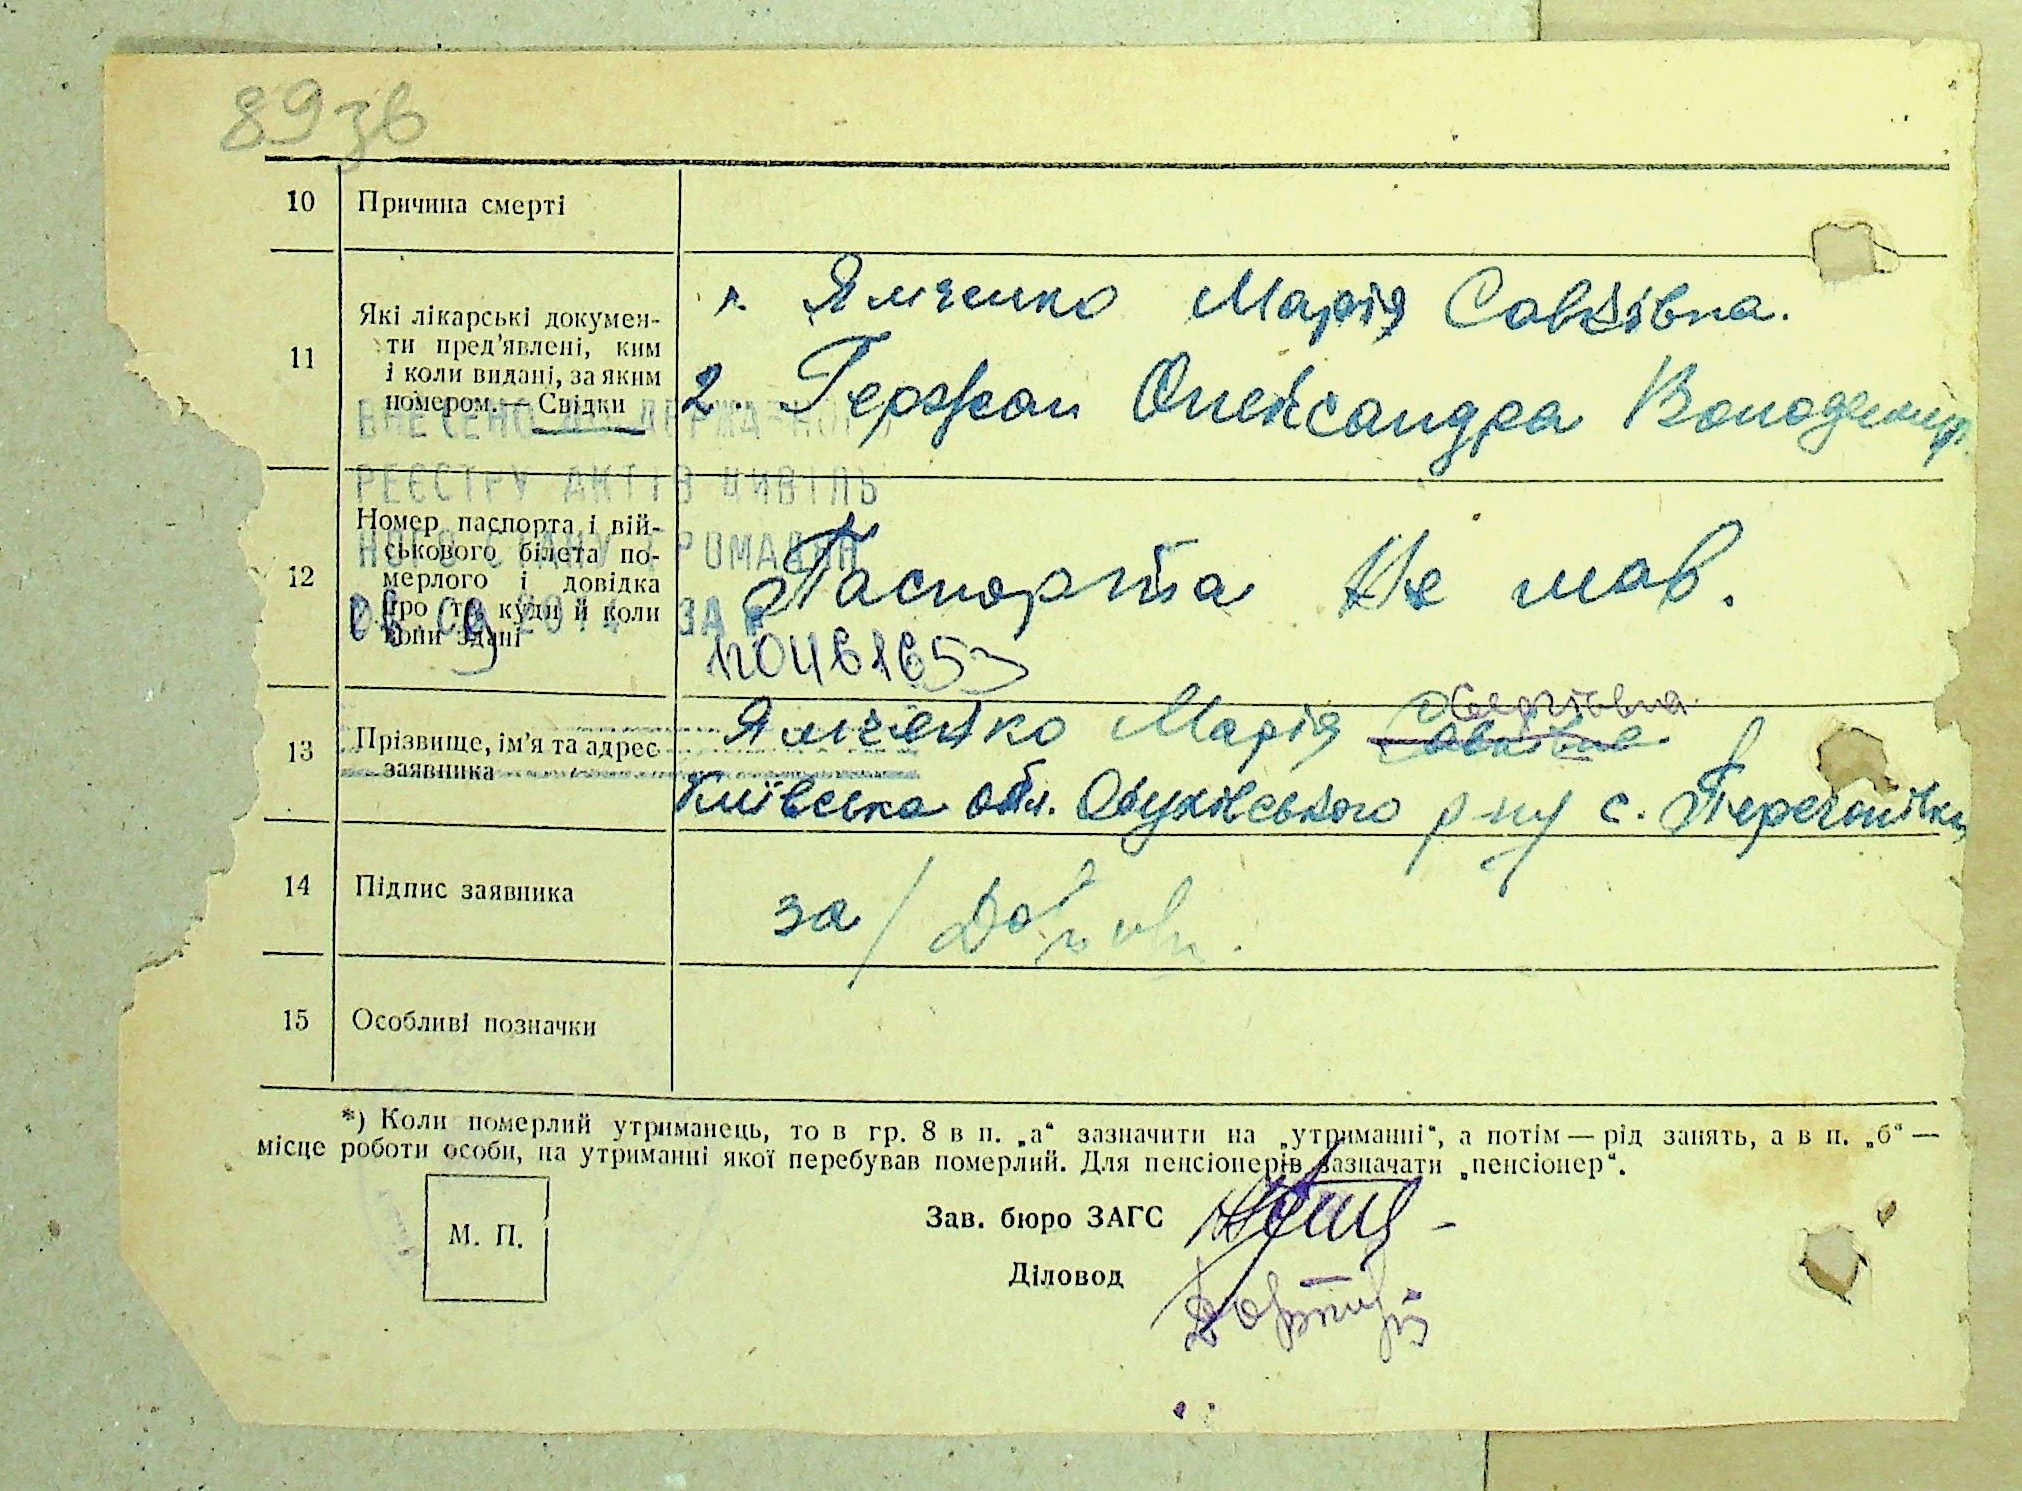 89зв
10 Причина смерті
11 Які лікарські докумен-
ти пред'явлені, ким
і коли видані, за яким
номером.— Свідки
1. Ямченко Марія Савківна.
2. Гержан Олександра Володимир.
ВНЕСЕНО ДО ДЕРЖАВНОГО
РЕЄСТРУ АКТІВ ЦИВІЛЬ
НОГО СТАНУ ГРОМАДЯН
2014 ЗА №
12 Номер паспорта і вій-
ськового білета по-
мерлого і довідка
про те, куди й коли
вони здані
Паспорта не мав.
13 Прізвище, ім'я та адрес
заявника
Ямченко Марія Савківна
Київська обл. Обухівського р-ну с.
14 Підпис заявника
за/
15 Особливі позначки
*) Коли померлий утриманець, то в гр. 8 в п. „а“ зазначити на „утриманні“, а потім — рід занять, а в п. „б“ —
місце роботи особи, на утриманні якої перебував померлий. Для пенсіонерів зазначати „пенсіонер“.
М. П.
Зав. бюро ЗАГС
Діловод